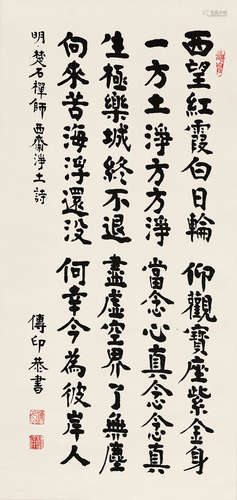 西望紅霞白日輪仰觀寶座紫金身
一方土淨方方淨當念心真念念真
生極樂城終不退盡虛空界了無塵
向來苦海浮還没何幸今為彼岸人
明楚石禪師西齋淨土詩傳印恭書